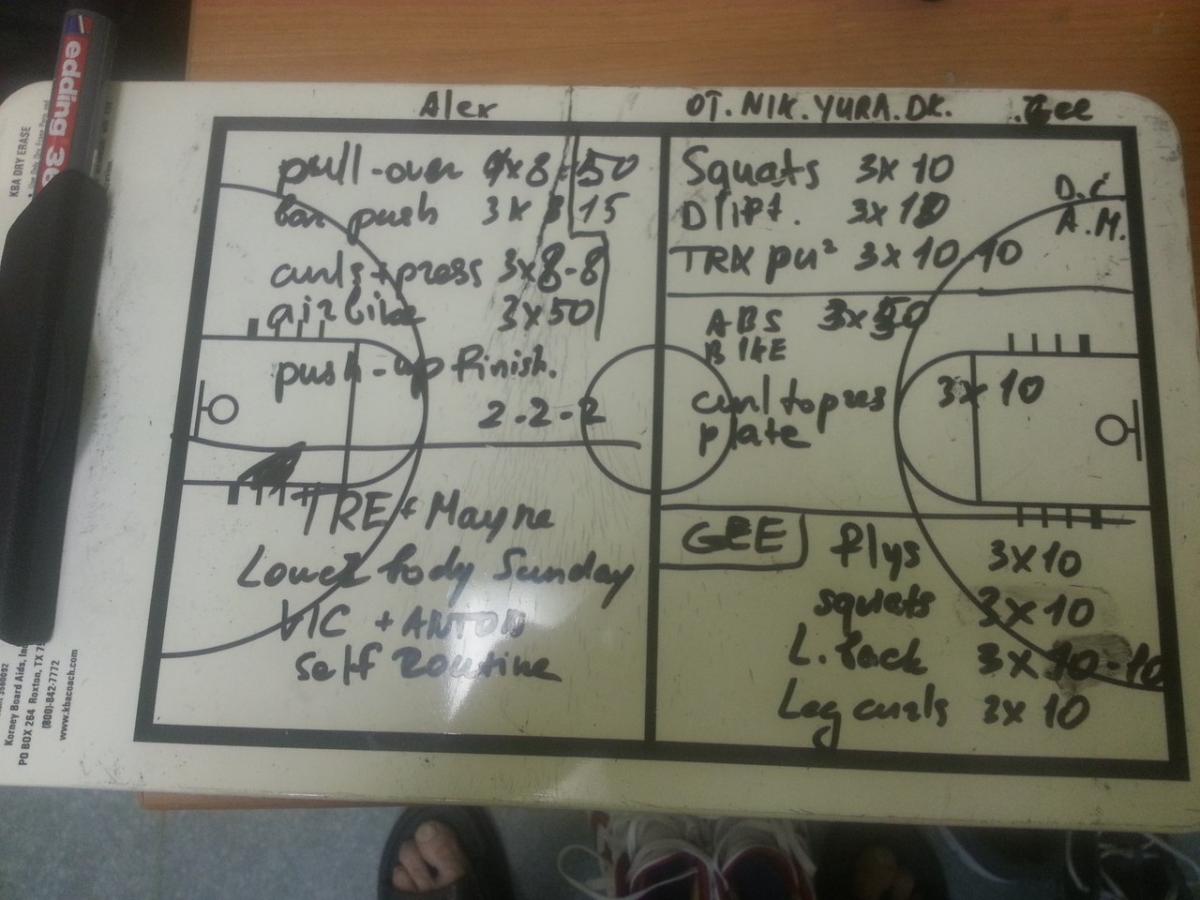 edding 36
KBA DRY ERASE
Korney Board Aids, Inc
PO BOX 264 Roxton, TX 75
(800)-842-7772
www.kbacoach.com
Alex
pull-over 4x8-50
bar push 3x8 15
curls + press 3x8-8
air bike 3x50
push-up finish.
2-2-2
TRE + Mayne
Lower body Sunday
VIC + ANTON
self routine
OT. NIK. YURA. DK. Gee
Squats 3x10
D lift. 3x10
TRX pu² 3x10-10
D.C
A.M.
ABS 3x50
BIKE
curl to pres 3x10
plate
GEE
Plys 3x10
squats 3x10
L. back 3x10-10
Leg curls 3x10